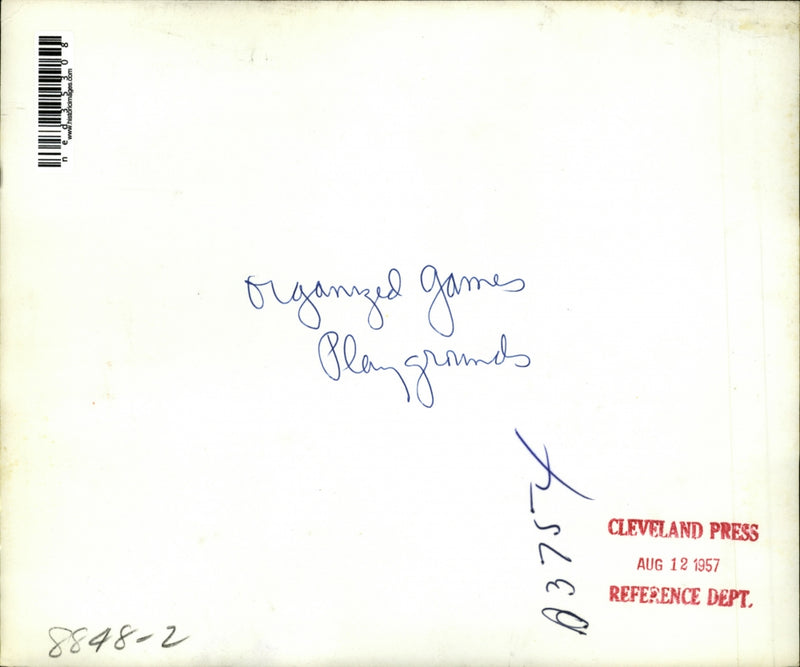 ned35308
www.historicimages.com
Organized Games
Playgrounds
CLEVELAND PRESS
AUG 12 1957
REFERENCE DEPT.
8848-2